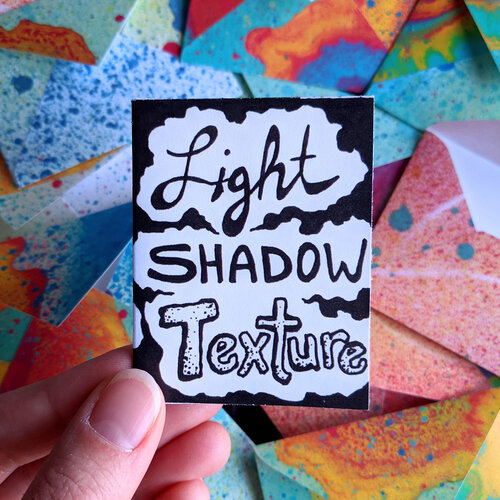 Light
SHADOW
Texture